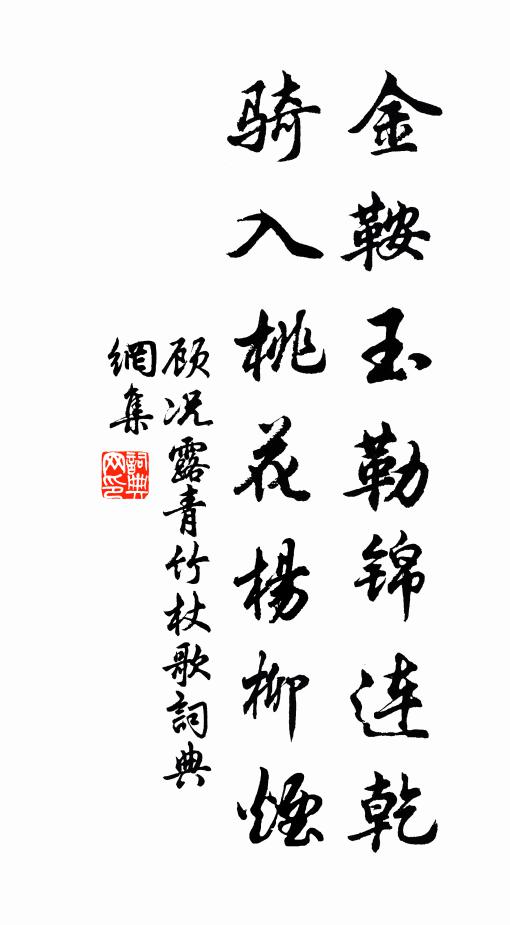 金鞍玉勒锦连乾
骑入桃花楊柳煙
顾况露青竹杖歌詞典
網集
詞典網印